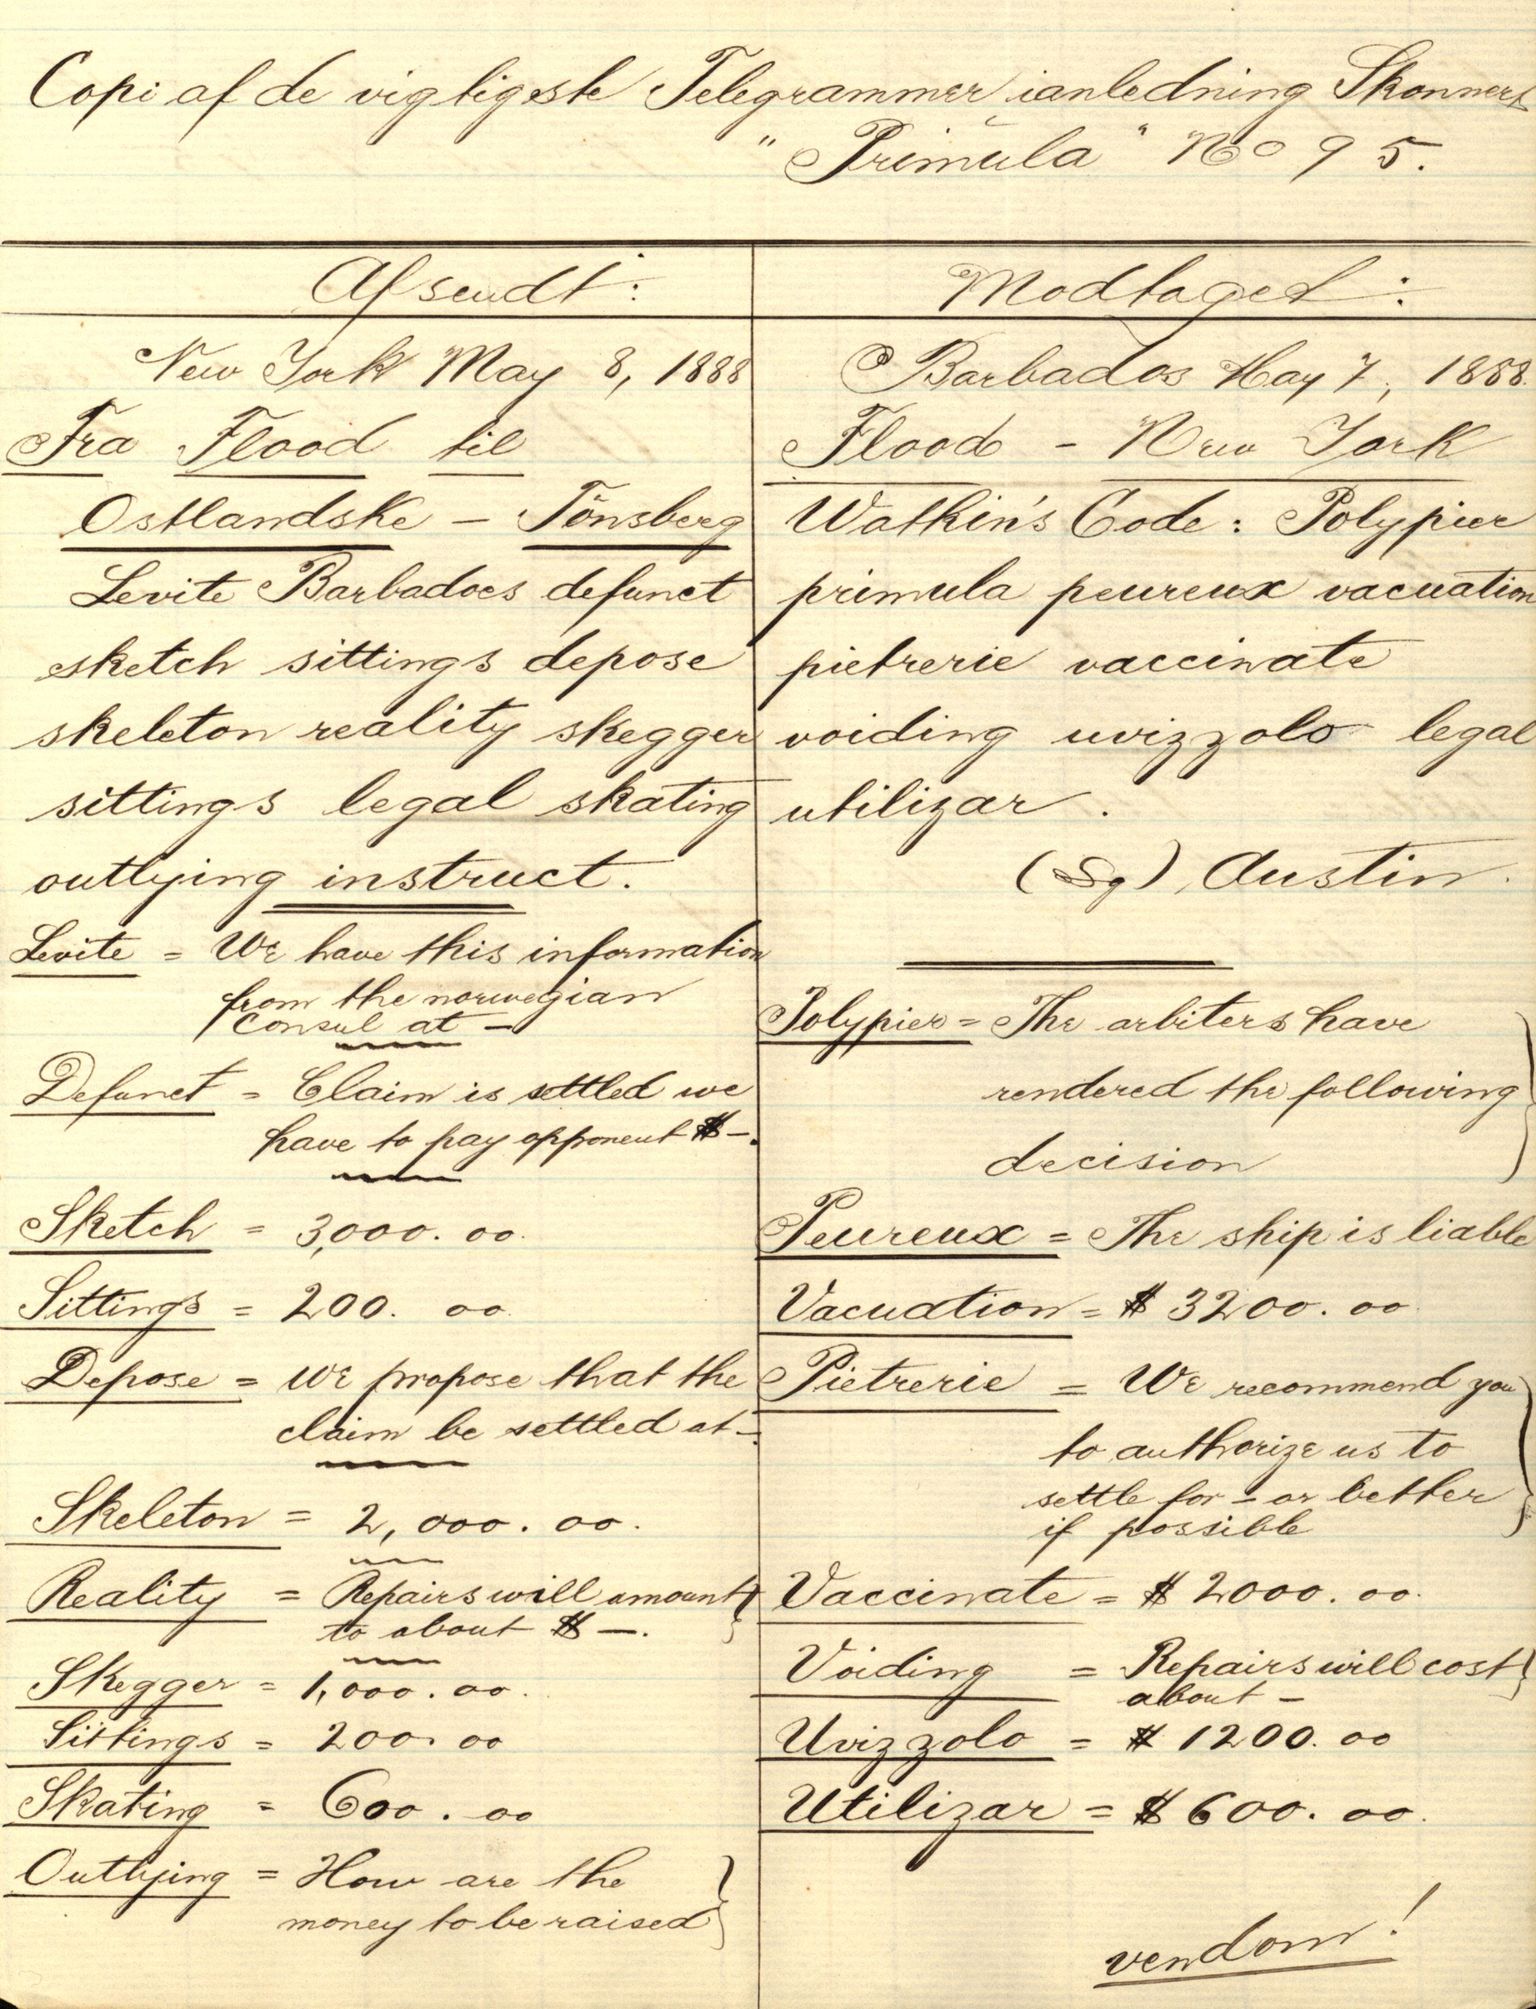 Copi af de vigtigste Telegrammer ianledning Skonnert
"Primula" No 95.
Afsendt:
New York May 8, 1888
Fra Flood til
Ostlandske – Tönsberg
Levite Barbadoes defunct
sketch sittings depose
skeleton reality skegger
sittings legal skating
outlying instruct.
Levite = We have this information
from the norwegian
consul at –
Defunct = Claim is settled we
have to pay opponent $ –.
Sketch = 3,000.00.
Sittings = 200.00.
Depose = We propose that the
claim be settled at –
Skeleton = 2,000.00.
Reality = Repairs will amount
to about $ –.
Skegger = 1,000.00.
Sittings = 200.00
Skating = 600.00
Outlying = How are the
money to be raised
Modtaget:
Barbados May 7, 1888.
Flood – New York
Watkin's Code: Polypier
primula peureux vacuation
pietrerie vaccinate
voiding uvizzolo legal
utilizar.
(Sg) Austin.
Polypier = The arbiters have
rendered the following
decision
Peureux = The ship is liable
Vacuation = $ 3200.00.
Pietrerie = We recommend you
to authorize us to
settle for – or better
if possible
Vaccinate = $ 2000.00.
Voiding = Repairs will cost
about –
Uvizzolo = $ 1200.00
Utilizar = $ 600.00.
vendom!